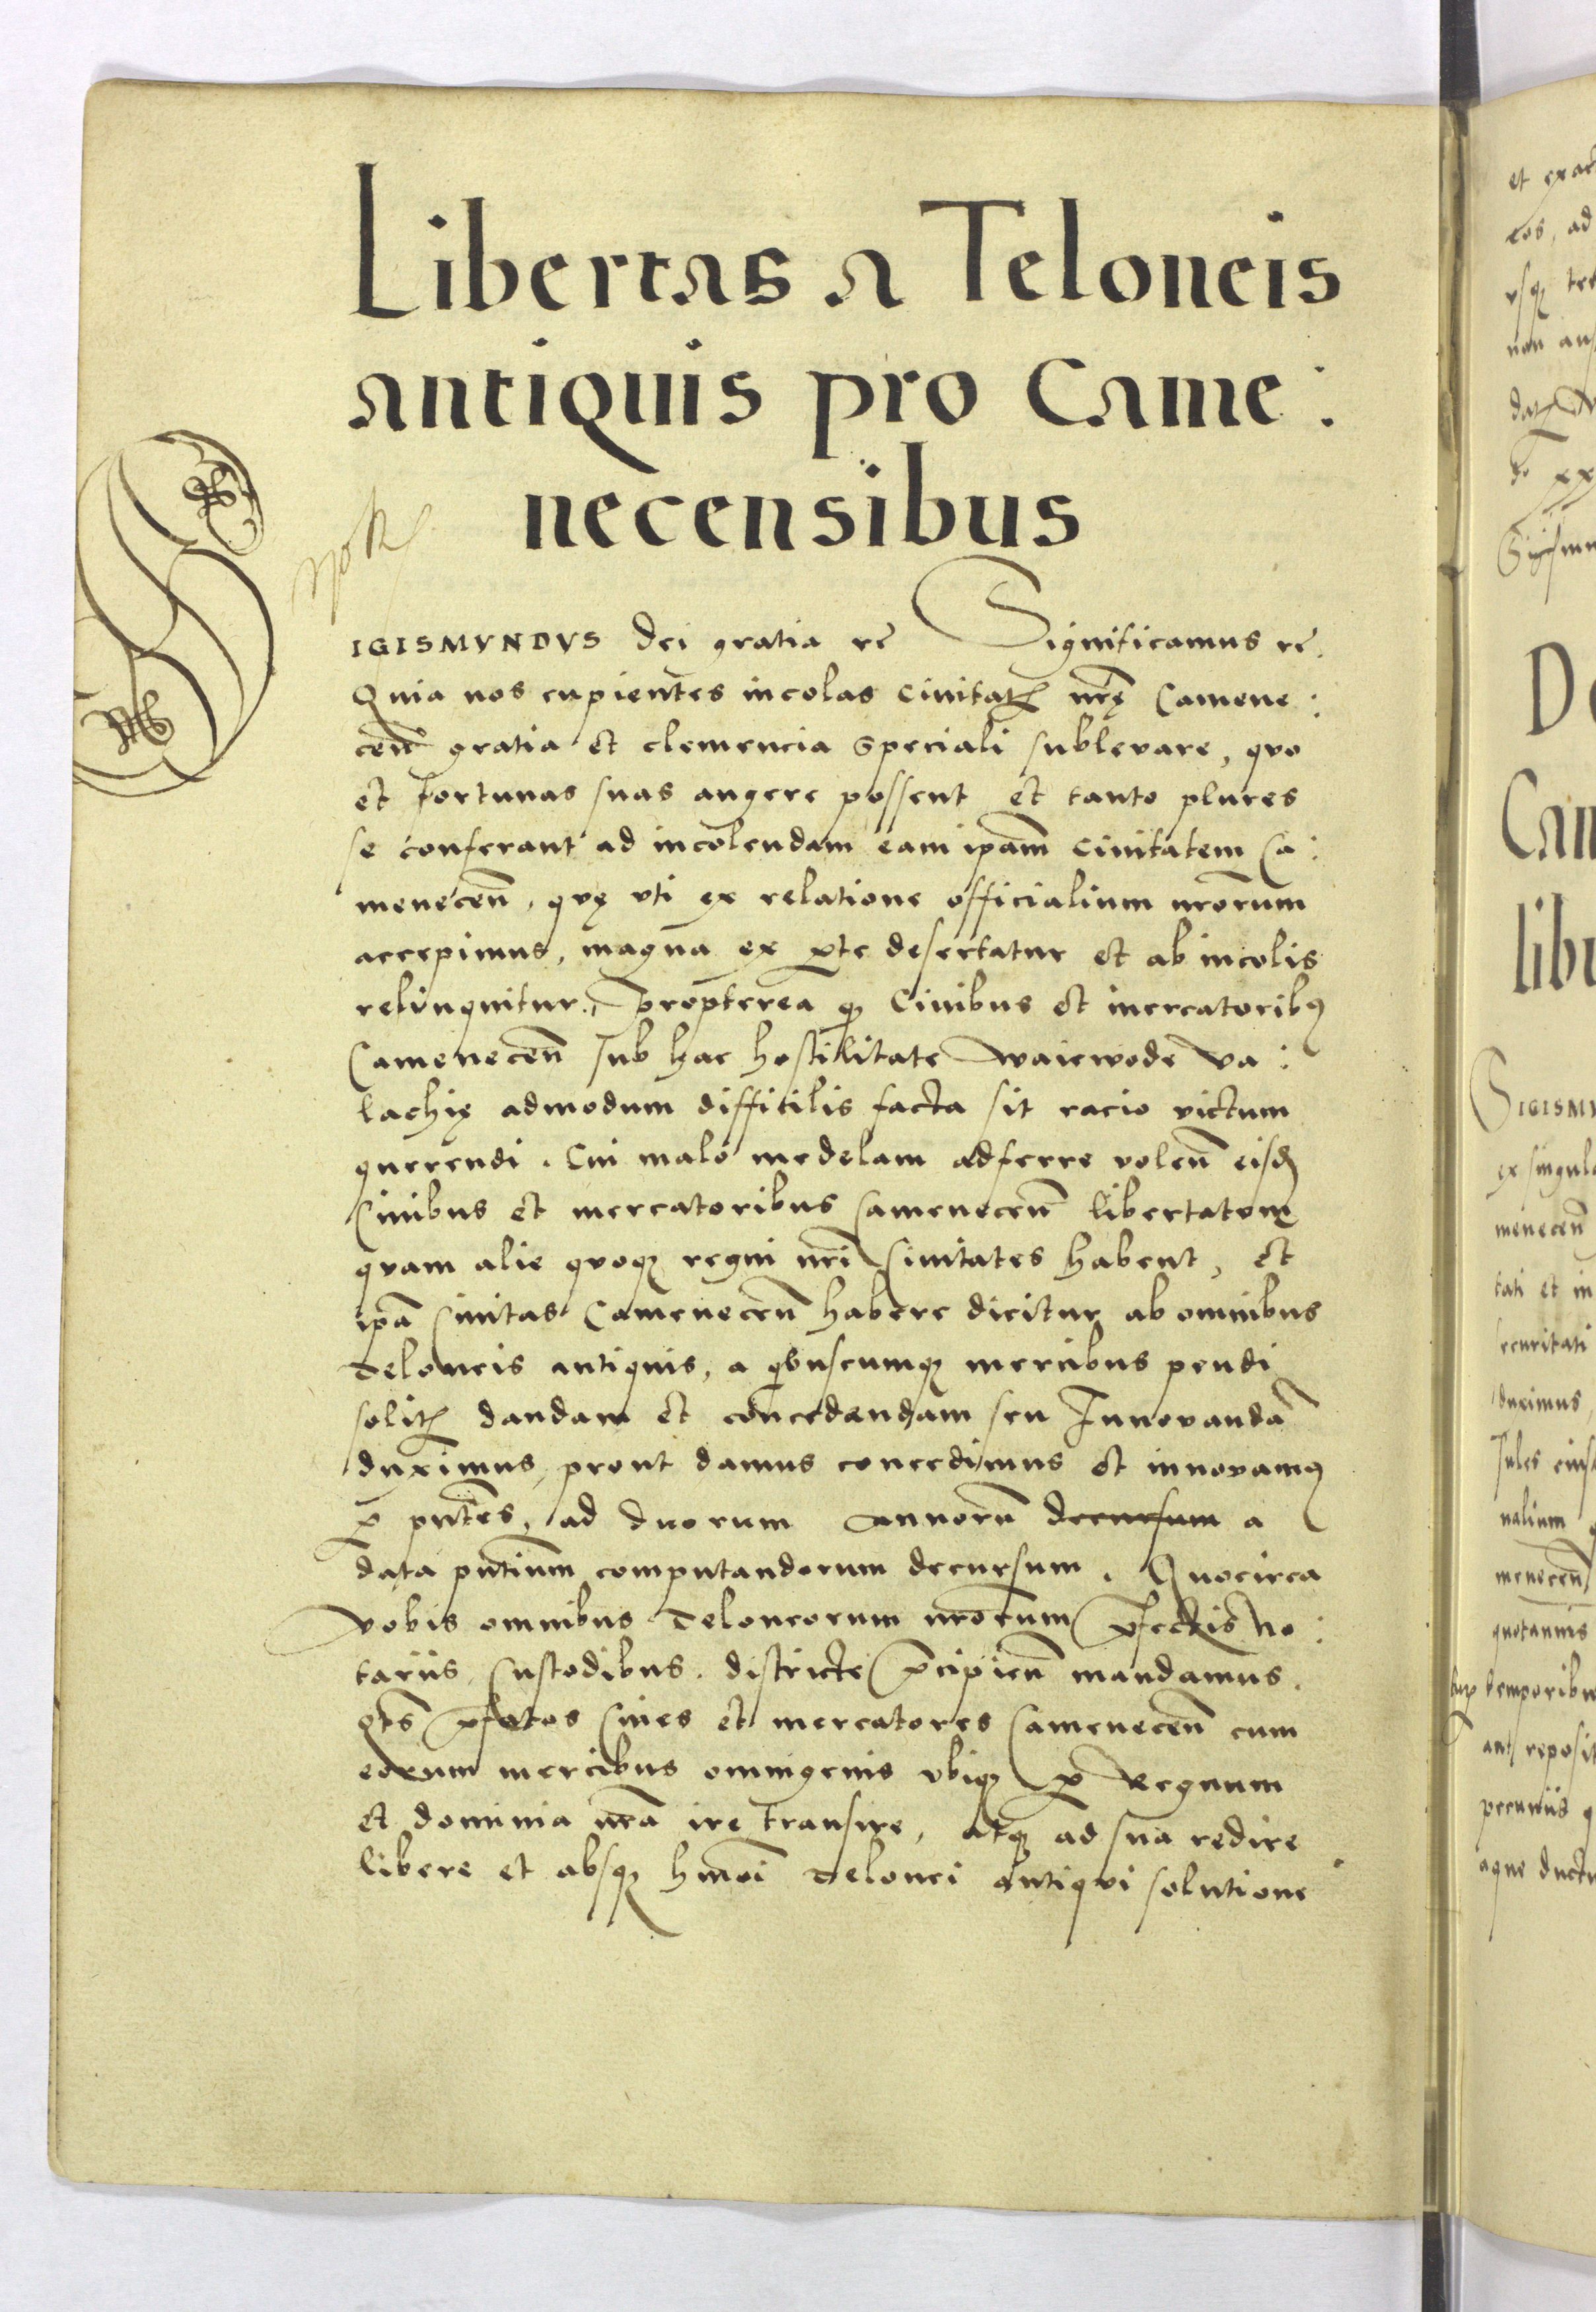 Libertas a Teloneis
antiquis pro Came:
necensibus
SIGISMVNDVS dei gratia rē Significamus rē.
Quia nos cupientes incolas Civitatꝭ nr̄ę Camene:
ceñ gratia et clemencia speciali sublevare, quo
et fortunas suas augere possent et tanto plures
se conferant ad incolendam eam ipãm civitatem Ca:
meneceñ, quę uti ex relatione officialium nr̄orum
accepimus, magna ex ꝑte desertatur et ab incolis
relinquitur. Propterea ꝙ Civibus et mercatoribꝰ
Cameneceñ sub hac hostilitate Waiewode Va:
lachię admodum difficilis facta sit racio victum
querendi. Cui malo medelam adferre voleñ eisdꝫ
Civibus et mercatoribus Cameneceñ libertatem
quam alie quoqꝫ regni nr̄i Civitates habent, et
ipã Civitas Cameneceñ habere dicitur ab omnibus
Teloneis antiquis, a qͥbuscumqꝫ mercibus pendi
solitꝭ dandam et concedendam seu Innovandã
duximus, prout damus concedimus et innovamꝰ
ꝑ pñtes, ad duorum annorũ decursum a
data pñtium computandorum decursum. Quocirca
vobis omnibus Teloneorum nr̄orum p̄fectis No:
tariis, Custodibus. districte p̄cipieñ mandamus.
qt̄s p̄fatos Cives et mercatores Cameneceñ cum
eorum mercibus omnigenis ubiqꝫ ꝑ Regnum
et dominia nr̄a ire transire, atqꝫ ad sua redire
libere et absqꝫ hm̄oi Telonei antiqui solutione
et exac
eos, ad
usqꝫ
non au
Sigismu
De
Cam
libu
SIGISMV
ex singula
meneceñ
tati et in
securitati
duximus,
nalium
meneceñ
quotannis
temporibu
aut reposit
pecuniis q
aque ductu